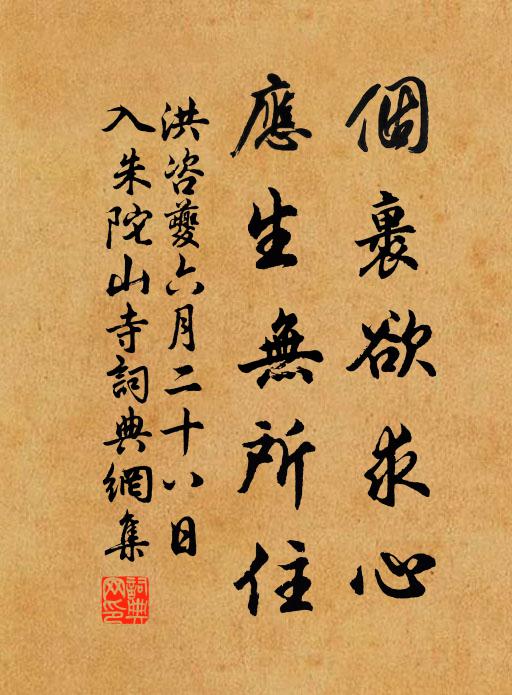 個裏欲求心
應生無所住
洪咨夔六月二十八日
入朱陀山寺詞典網集
詞典網印